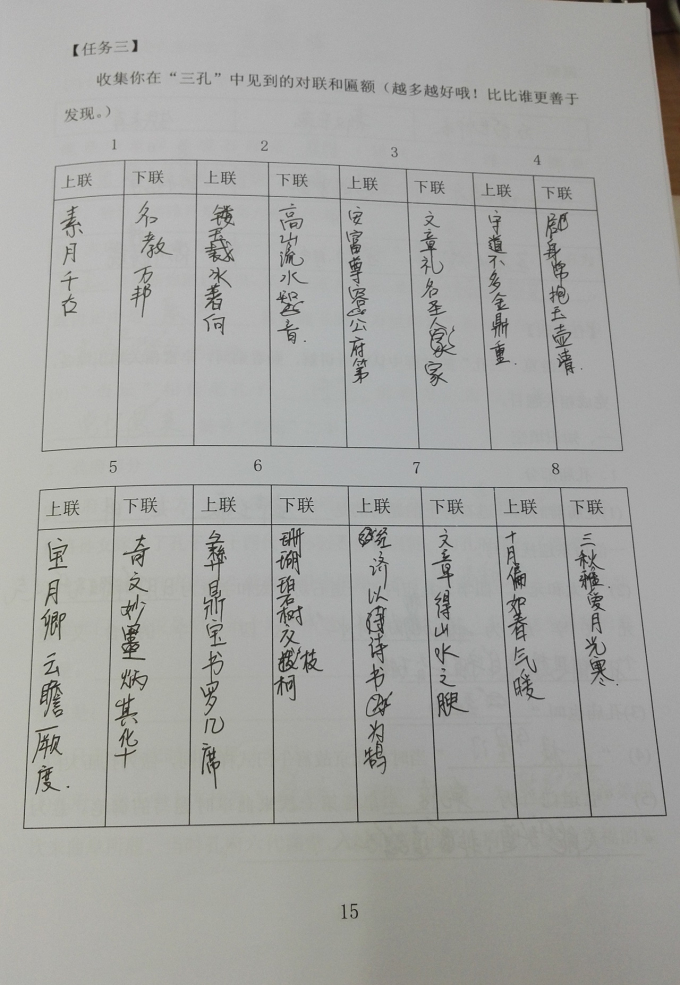 【任务三】
收集你在“三孔”中见到的对联和匾额（越多越好哦！比比谁更善于
发现。）
1
2
3
4
上联
下联
上联
下联
上联
下联
上联
下联
素月千古
名教万邦
镂玉裁冰著句
高山流水音
安富尊容公府第
文章礼名圣人家
守道不多金鼎重
身常抱玉壶清
5
6
7
8
上联
下联
上联
下联
上联
下联
上联
下联
宝月卿云瞻度
奇文妙墨炳其华
彝鼎宝书罗几席
珊瑚碧树交枝柯
经济以诗书为鹄
文章得山水之腴
十月偏如春气暖
三秋雅爱月光寒
15